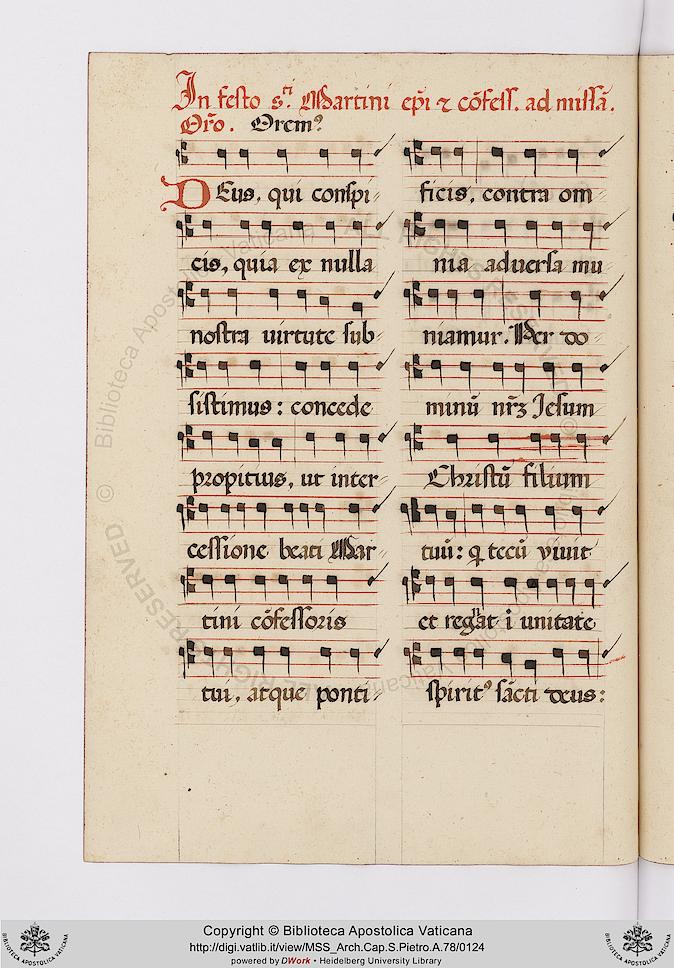 In festo s.ti Martini epi̅ ⁊ co̅fess. ad missa̅.
Oro̅. Oremꝰ
DEus, qui conspi-
cis, quia ex nulla
nostra uirtute sub-
sistimus: concede
propitius, ut inter-
cessione beati Mar-
tini co̅fessoris
tui, atque ponti-
ficis, contra om
nia aduersa mu
niamur. Per do-
minu̅ nr̅ꝫ Iesum
Christu̅ filium
tuu̅: q̅ tecu̅ viuit
et regnat i̅ unitate
spiritꝰ sa̅cti deus:
© Biblioteca Apostolica Vaticana
ALL RIGHTS RESERVED
Copyright © Biblioteca Apostolica Vaticana
http://digi.vatlib.it/view/MSS_Arch.Cap.S.Pietro.A.78/0124
powered by DWork • Heidelberg University Library
BIBLIOTECA APOSTOLICA VATICANA
BIBLIOTECA APOSTOLICA VATICANA